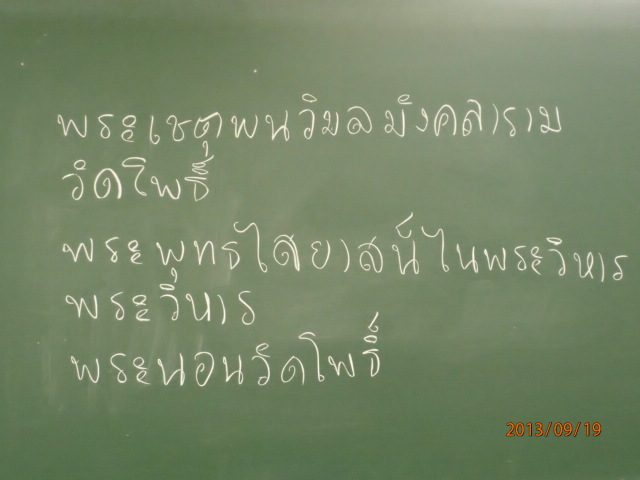 พระเชตุพนวิมลมังคลาราม
วัดโพธิ์
พระพุทธไสยาสน์ในพระวิหาร
พระวิหาร
พระนอนวัดโพธิ์
2013/09/19